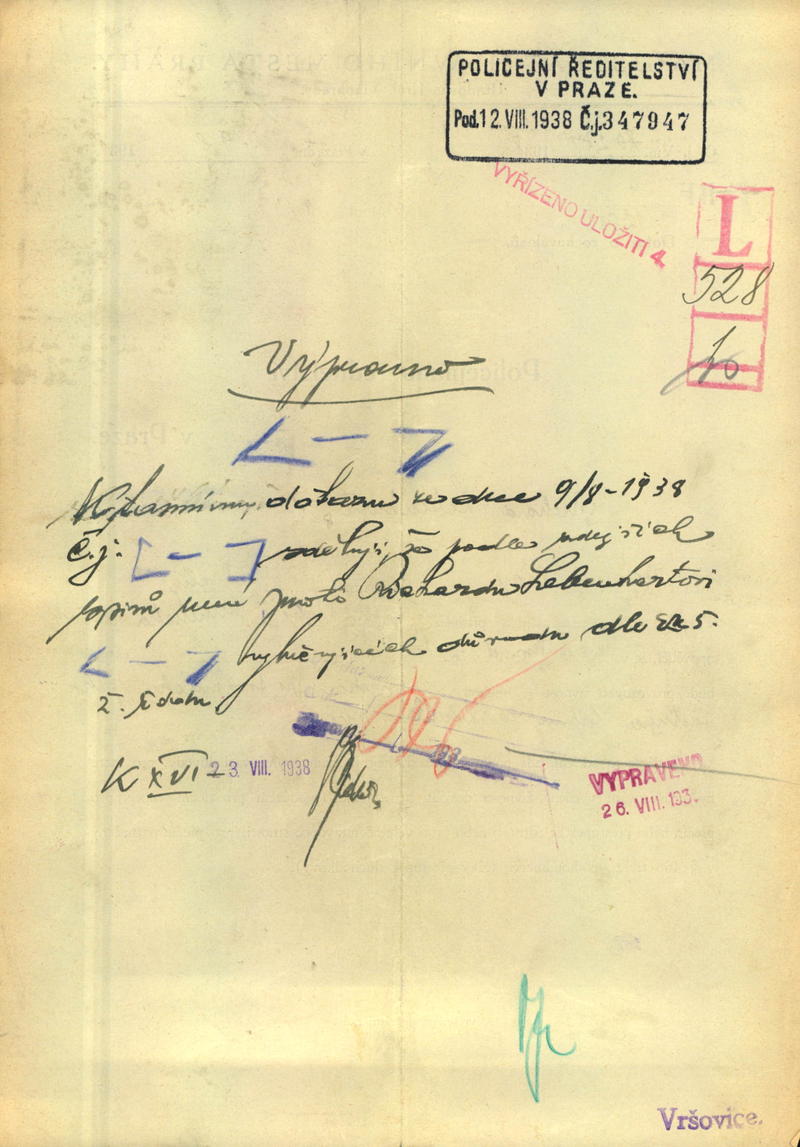 POLICEJNÍ ŘEDITELSTVÍ
V PRAZE.
Pod. 12. VIII. 1938 Č.j. 347947
VYŘÍZENO ULOŽITI 4.
L
528
10
Výpravno
K tamnímu dotazu ze dne 9/8-1938
č.j. sděluji, že podle zdejších
spisů není proti Richardu Lebenhartovi
vylučujících důvodu dle § 5.
ž. řádu.
K XVI 23. VIII. 1938
VYPRAVENO
26. VIII. 193
Vršovice.